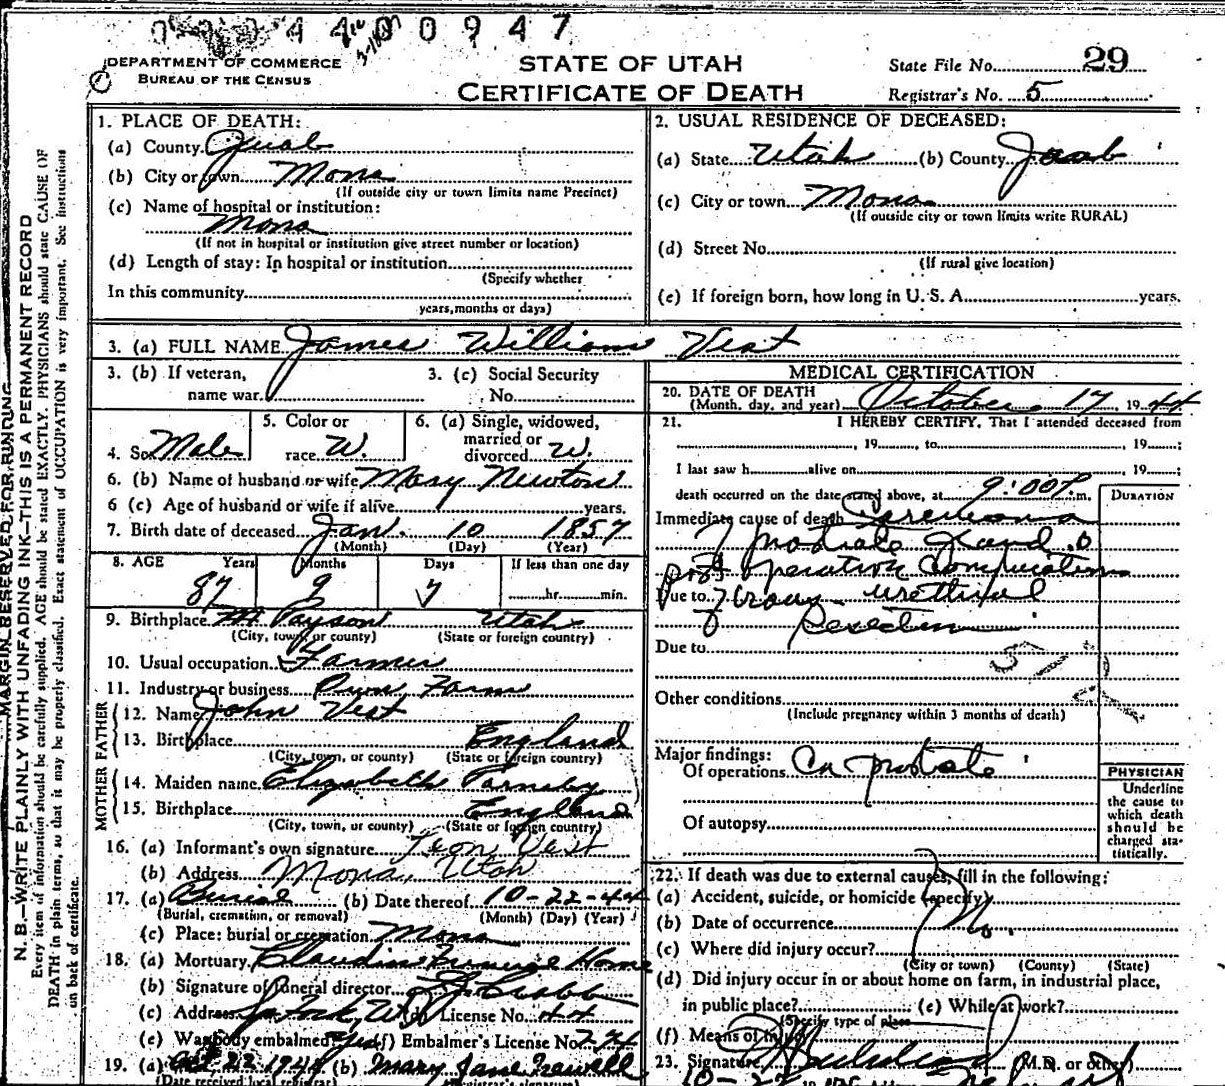 4 4 0 0 9 4 7
DEPARTMENT OF COMMERCE
BUREAU OF THE CENSUS
STATE OF UTAH
CERTIFICATE OF DEATH
State File No. 29
Registrar's No. 5
MARGIN RESERVED FOR BINDING
N. B.—WRITE PLAINLY WITH UNFADING INK—THIS IS A PERMANENT RECORD
Every item of information should be carefully supplied. AGE should be stated EXACTLY. PHYSICIANS should state CAUSE OF
DEATH in plain terms, so that it may be properly classified. Exact statement of OCCUPATION is very important. See instructions
on back of certificate.
1. PLACE OF DEATH:
(a) County Juab
(b) City or town Mona
(If outside city or town limits name Precinct)
(c) Name of hospital or institution:
Mona
(If not in hospital or institution give street number or location)
(d) Length of stay: In hospital or institution
(Specify whether
In this community
years, months or days)
2. USUAL RESIDENCE OF DECEASED:
(a) State Utah (b) County Juab
(c) City or town Mona
(If outside city or town limits write RURAL)
(d) Street No.
(If rural give location)
(e) If foreign born, how long in U. S. A. years.
3. (a) FULL NAME James William Vest
3. (b) If veteran,
name war
3. (c) Social Security
No.
4. Sex Male
5. Color or
race W.
6. (a) Single, widowed,
married or
divorced W.
6. (b) Name of husband or wife Mary Newton
6 (c) Age of husband or wife if alive years.
7. Birth date of deceased Jan. 10 1857
(Month) (Day) (Year)
8. AGE Years Months Days If less than one day
87 9 7 hr. min.
9. Birthplace Payson Utah
(City, town, or county) (State or foreign country)
10. Usual occupation Farmer
11. Industry or business Own Farm
FATHER
12. Name John Vest
13. Birthplace England
(City, town, or county) (State or foreign country)
MOTHER
14. Maiden name Elizabeth
15. Birthplace England
(City, town, or county) (State or foreign country)
16. (a) Informant's own signature Leon Vest
(b) Address Mona, Utah
17. (a) Burial (b) Date thereof 10-22-44
(Burial, cremation, or removal) (Month) (Day) (Year)
(c) Place: burial or cremation Mona
18. (a) Mortuary Claudin Funeral Home
(b) Signature of funeral director
(c) Address (d) License No. 44
(e) Was body embalmed? Yes (f) Embalmer's License No.
19. (a) Oct 22 1944 (b) Mary Jane
(Date received local registrar) (Registrar's signature)
MEDICAL CERTIFICATION
20. DATE OF DEATH
(Month, day, and year) October 17, 1944
21. I HEREBY CERTIFY, That I attended deceased from
, 19 , to , 19 ;
I last saw h alive on , 19 ;
death occurred on the date stated above, at 9:00 P. m.
DURATION
Immediate cause of death Carcinoma
of prostate gland
post operation complication
Due to of trans-urethral
resection
Due to
Other conditions
(Include pregnancy within 3 months of death)
Major findings:
Of operations Ca prostate
Of autopsy
PHYSICIAN
Underline
the cause to
which death
should be
charged sta-
tistically.
22. If death was due to external causes, fill in the following:
(a) Accident, suicide, or homicide (specify) No.
(b) Date of occurrence
(c) Where did injury occur?
(City or town) (County) (State)
(d) Did injury occur in or about home on farm, in industrial place,
in public place? (e) While at work?
(Specify type of place
(f) Means of injury
23. Signature M.D. or other